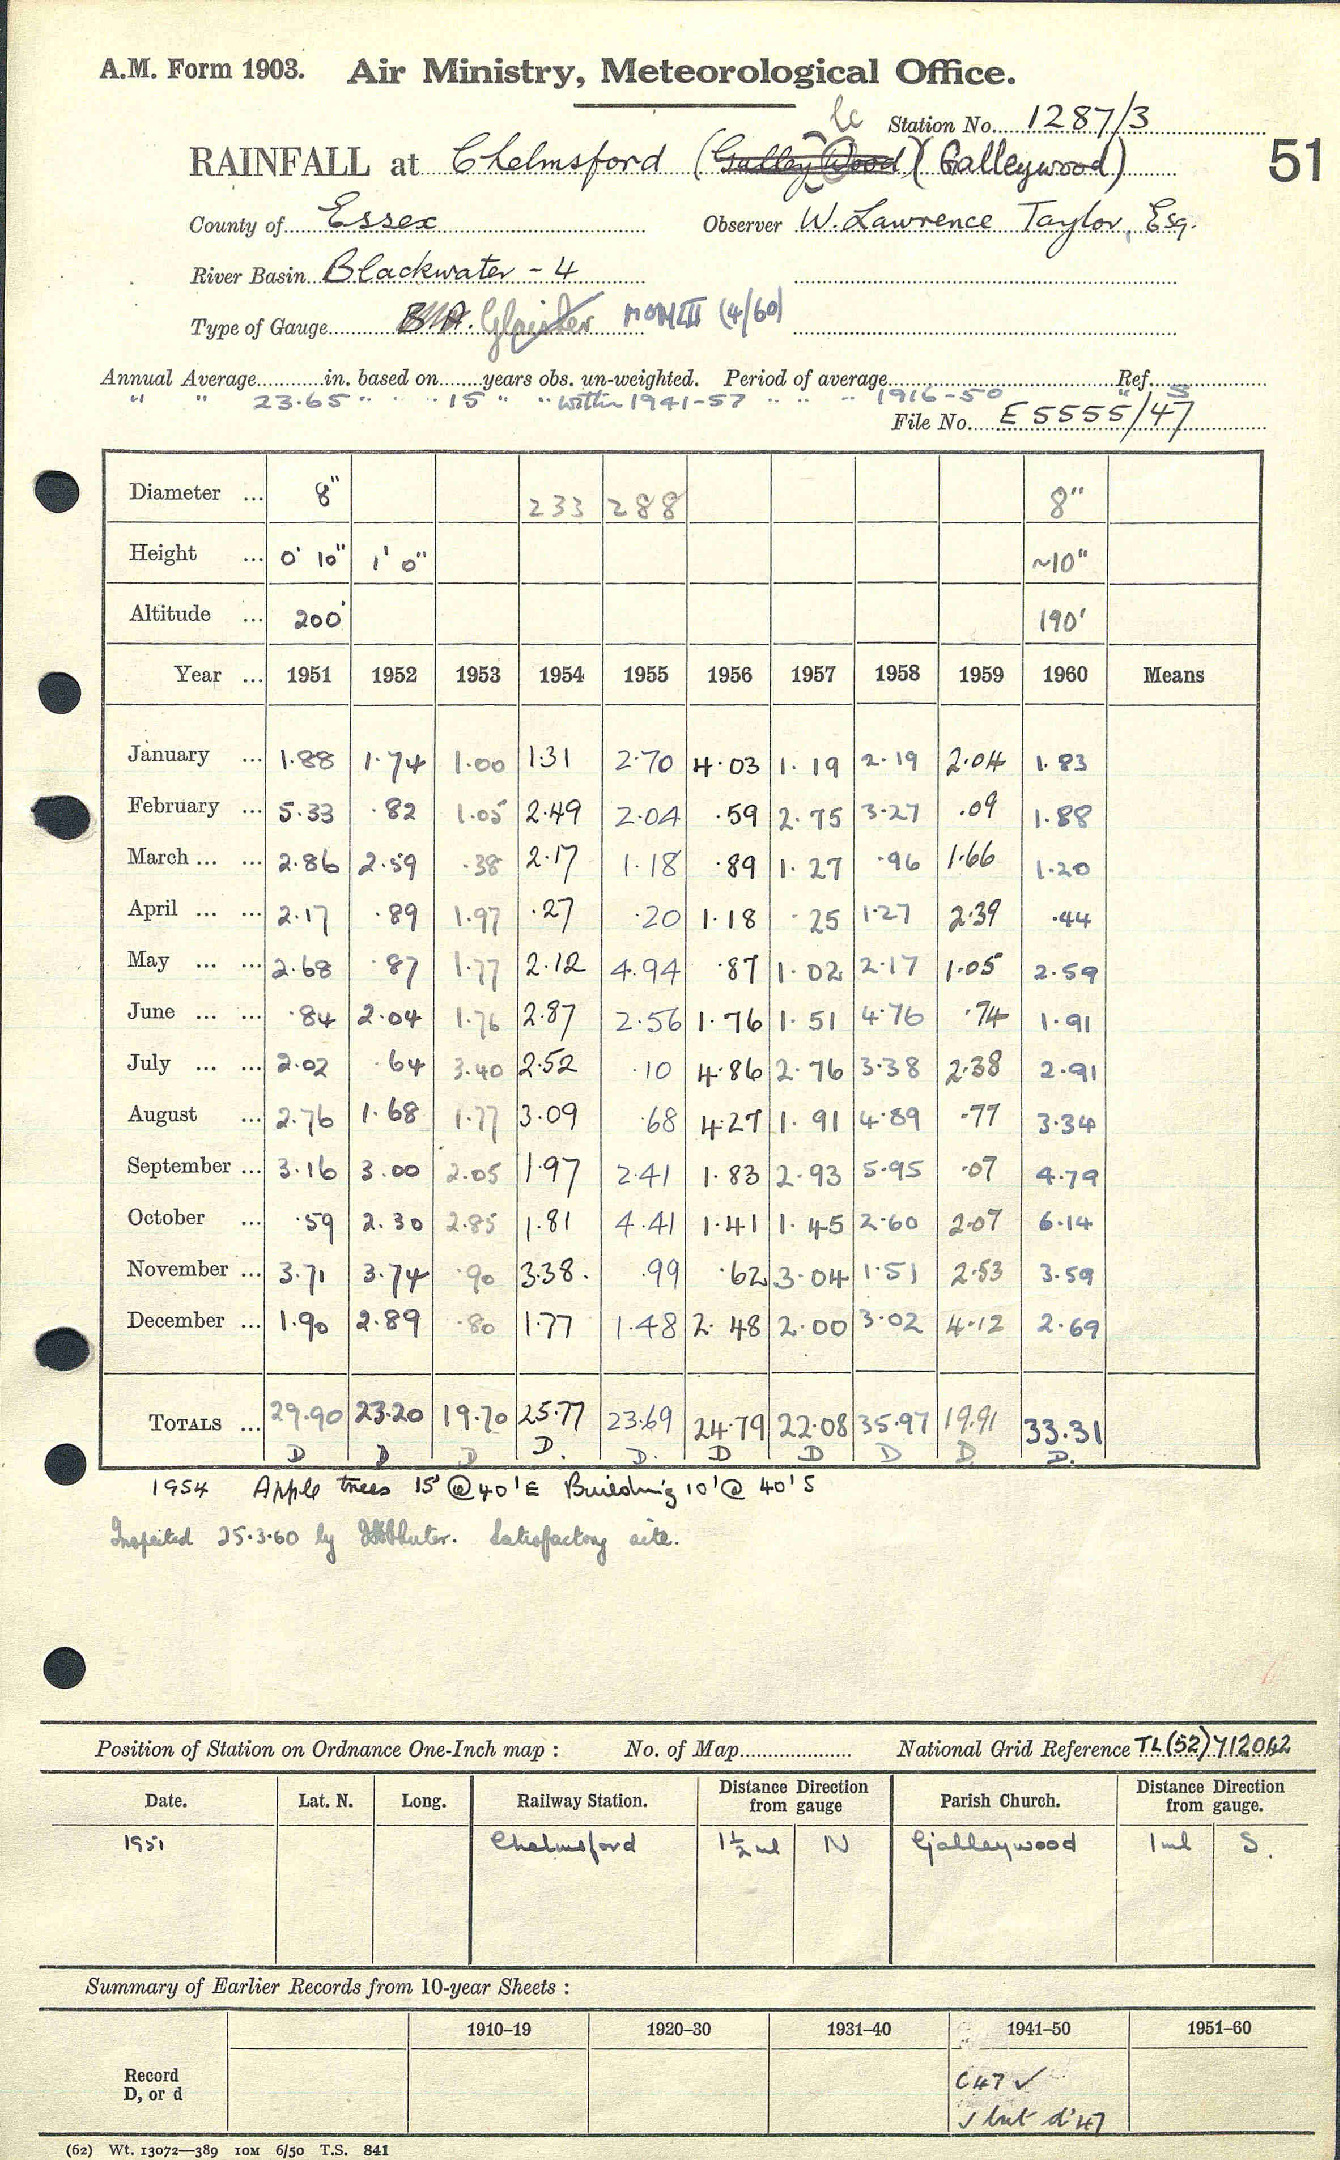 A.M. Form 1903. Air Ministry, Meteorological Office.
lc
Station No. 1287/3
RAINFALL at Chelmsford (Galley Wood) (Galleywood)
51
County of Essex Observer W. Lawrence Taylor, Esq.
River Basin Blackwater - 4
Type of Gauge Glaisher MOMIII (4/60)
Annual Average in. based on years obs. un-weighted. Period of average Ref.
" " 23.65 " " 15 " " within 1941-57 " " " 1916-50 " S
File No. E 5555/47
Diameter ... 8" 233 288 8"
Height ... 0' 10" 1' 0" ~10"
Altitude ... 200' 190'
Year ... 1951 1952 1953 1954 1955 1956 1957 1958 1959 1960 Means
January ... 1.88 1.74 1.00 1.31 2.70 4.03 1.19 2.19 2.04 1.83
February ... 5.33 .82 1.05 2.49 2.04 .59 2.75 3.27 .09 1.88
March ... ... 2.86 2.59 .38 2.17 1.18 .89 1.27 .96 1.66 1.20
April ... ... 2.17 .89 1.97 .27 .20 1.18 .25 1.27 2.39 .44
May ... ... 2.68 .87 1.77 2.12 4.94 .87 1.02 2.17 1.05 2.59
June ... ... .84 2.04 1.76 2.87 2.56 1.76 1.51 4.76 .74 1.91
July ... ... 2.02 .64 3.40 2.52 .10 4.86 2.76 3.38 2.38 2.91
August ... 2.76 1.68 1.77 3.09 .68 4.27 1.91 4.89 .77 3.34
September ... 3.16 3.00 2.05 1.97 2.41 1.83 2.93 5.95 .07 4.79
October ... .59 2.30 2.85 1.81 4.41 1.41 1.45 2.60 2.07 6.14
November ... 3.71 3.74 .90 3.38. .99 .62 3.04 1.51 2.53 3.59
December ... 1.90 2.89 .80 1.77 1.48 2.48 2.00 3.02 4.12 2.69
TOTALS ... 29.90 23.20 19.70 25.77 23.69 24.79 22.08 35.97 19.91 33.31
D D D D. D. D D D D. D.
1954 Apple trees 15' @ 40' E Building 10' @ 40' S
Inspected 25.3.60 by Satisfactory site.
Position of Station on Ordnance One-Inch map : No. of Map National Grid Reference TL(52)712042
Date. Lat. N. Long. Railway Station. Distance Direction from gauge Parish Church. Distance Direction from gauge.
1951 Chelmsford 1½ ml N Galleywood 1 ml S.
Summary of Earlier Records from 10-year Sheets :
1910–19 1920–30 1931–40 1941–50 1951–60
Record
D, or d
C47 ✓
✓ but d'47
(62) Wt. 13072—389 10M 6/50 T.S. 841